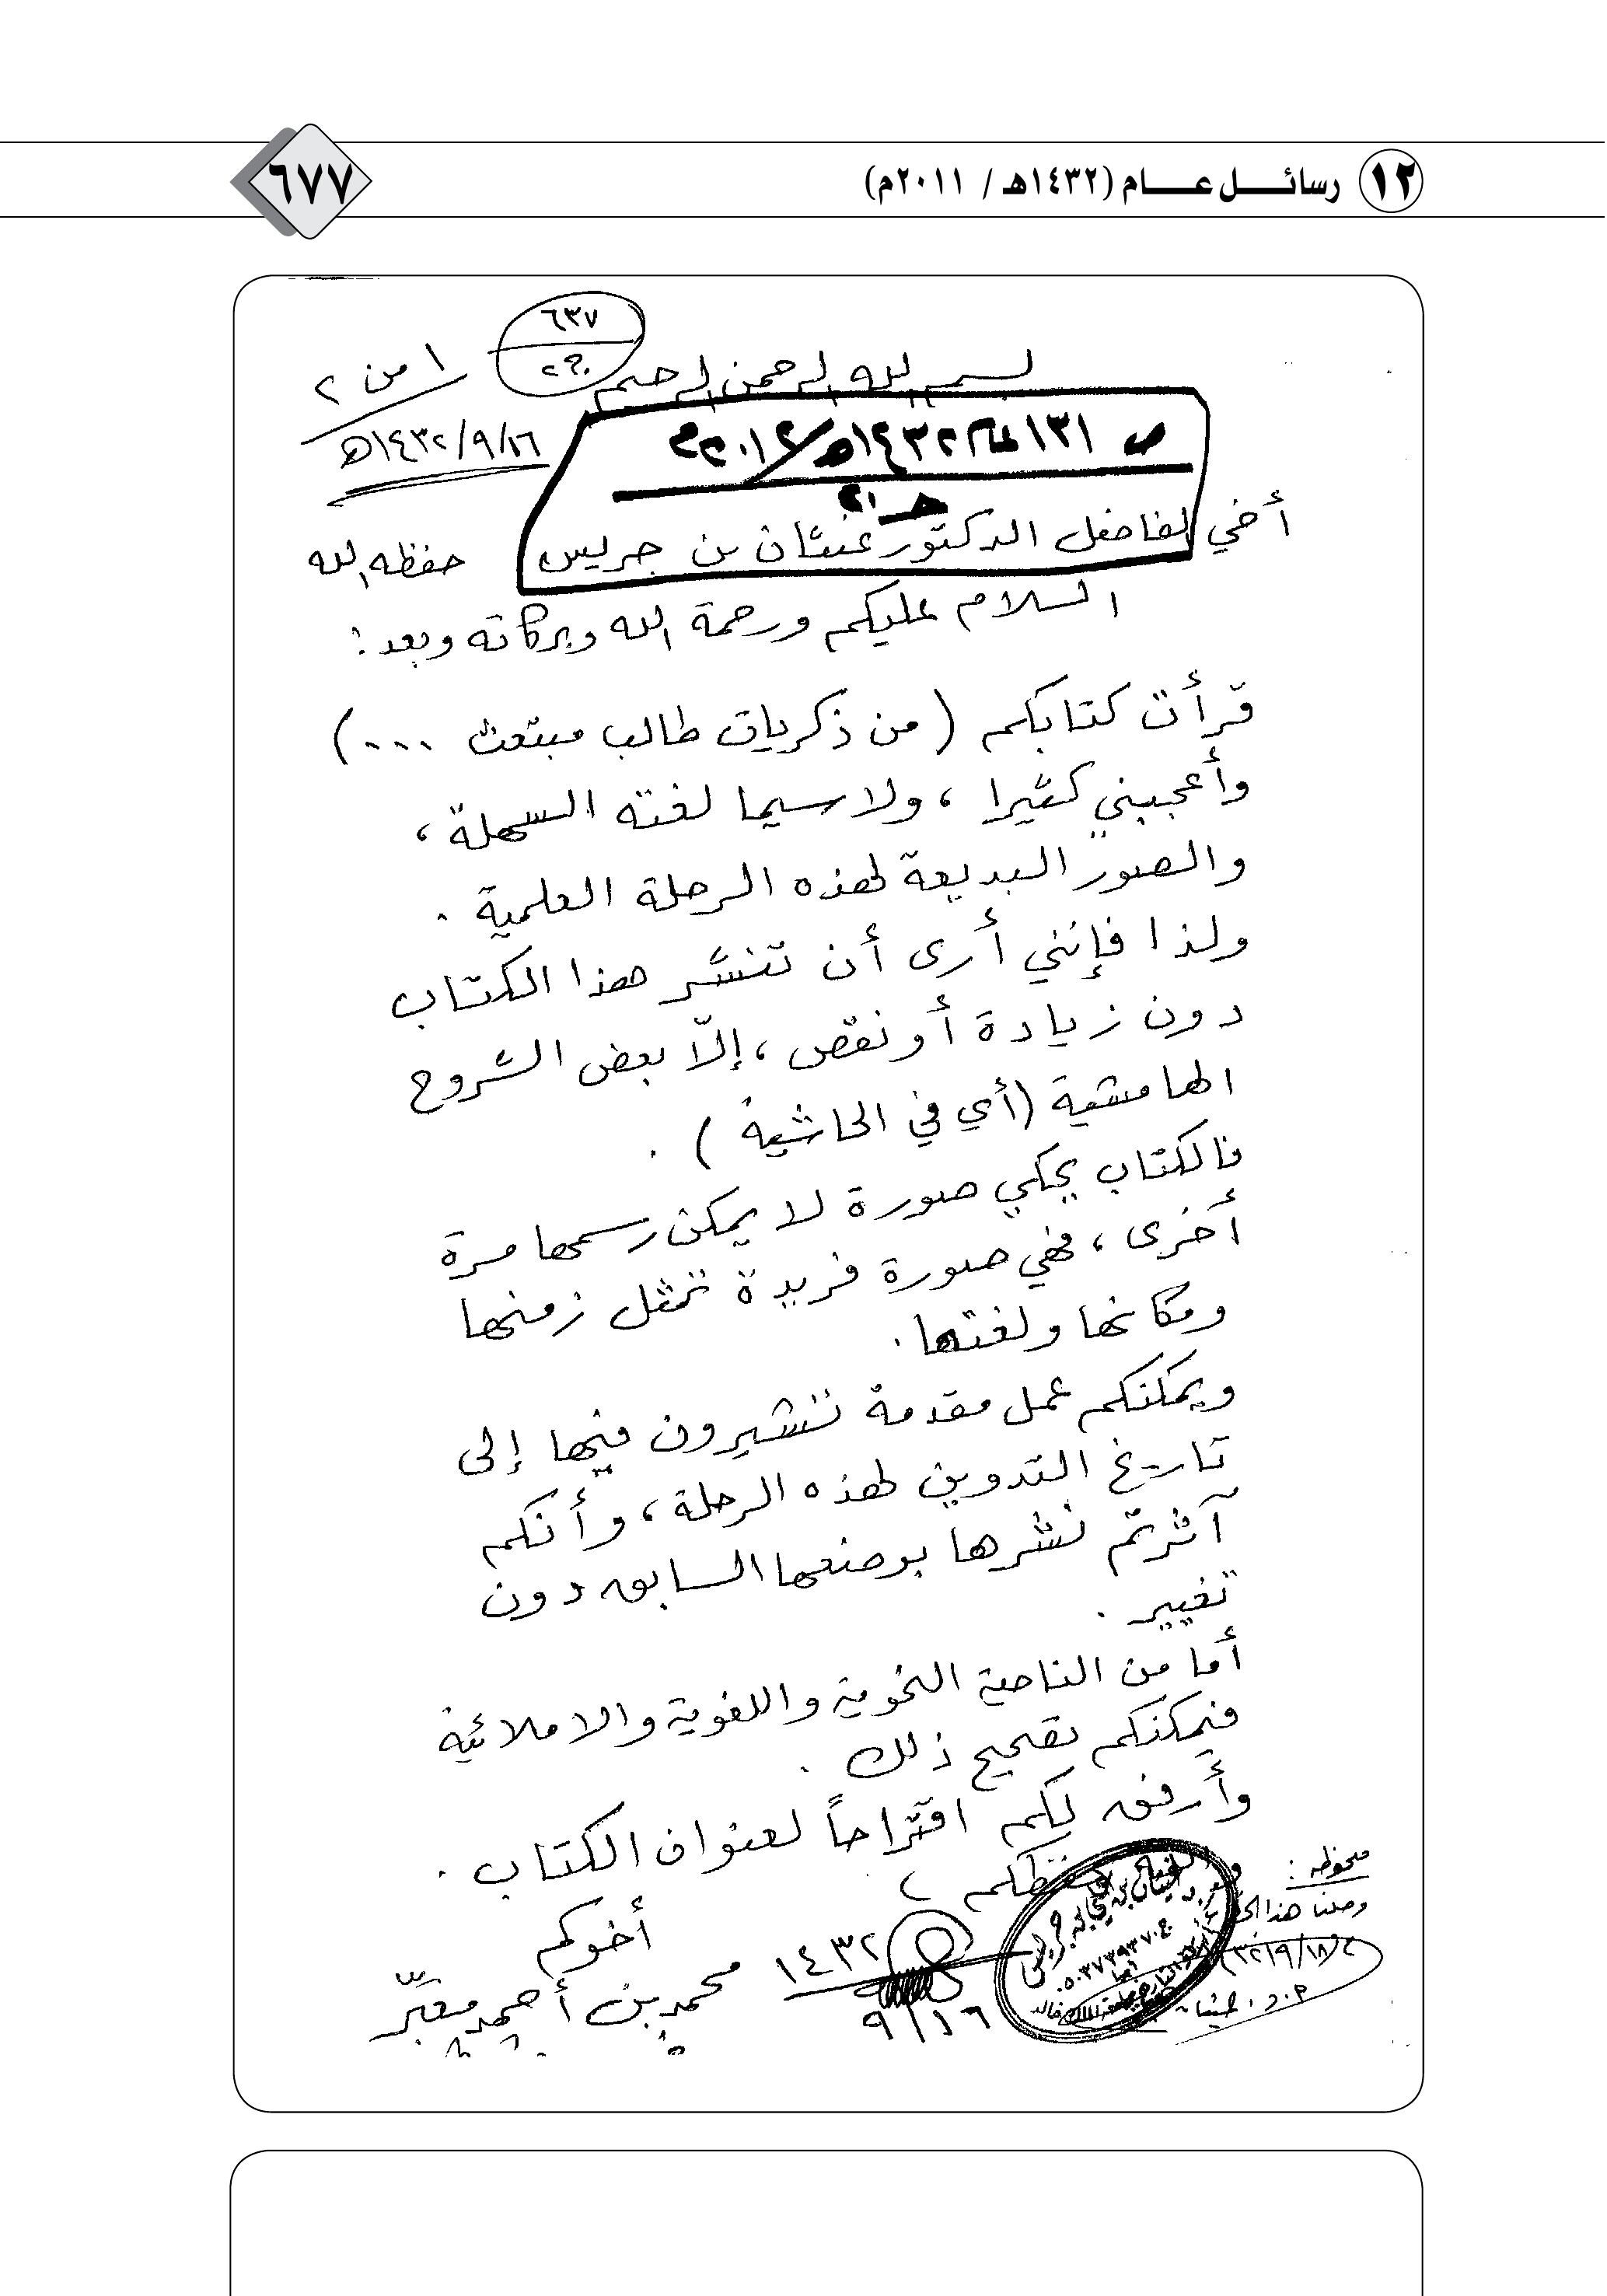 ١٢ رسائل عام (١٤٣٢هـ / ٢٠١١م)
٦٧٧
٦٣٧
بسم الله الرحمن الرحيم
١ من ٢
١٤٣٢/٩/١٦هـ
أخي الفاضل الدكتور غيثان بن جريس حفظه الله
السلام عليكم ورحمة الله وبركاته وبعد:
قرأت كتابكم (من ذكريات طالب مبتعث ...)
وأعجبني كثيرا، ولاسيما لغته السهلة،
والصور البديعة لهذه الرحلة العلمية.
ولذا فإنني أرى أن تنشر هذا الكتاب
دون زيادة أو نقص، إلّا بعض الشروح
الهامشية (أي في الحاشية).
فالكتاب يحكي صورة لا يمكن رسمها مرة
أخرى، فهي صورة فريدة تمثل زمنها
ومكانها ولغتها.
ويمكنكم عمل مقدمة تشيرون فيها إلى
تاريخ التدوين لهذه الرحلة، وأنكم
آثرتم نشرها بوضعها السابق دون
تغيير.
أما من الناحية النحوية واللغوية والاملائية
فيمكنكم تصحيح ذلك.
وأرفق لكم اقتراحاً لعنوان الكتاب.
أخوكم
محمد بن أحمد معبّر
١٤٣٢
٩/١٦
ملحوظة:
وصلنا هذا